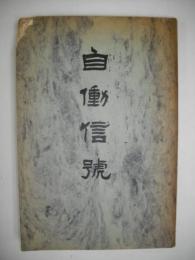 自働信號